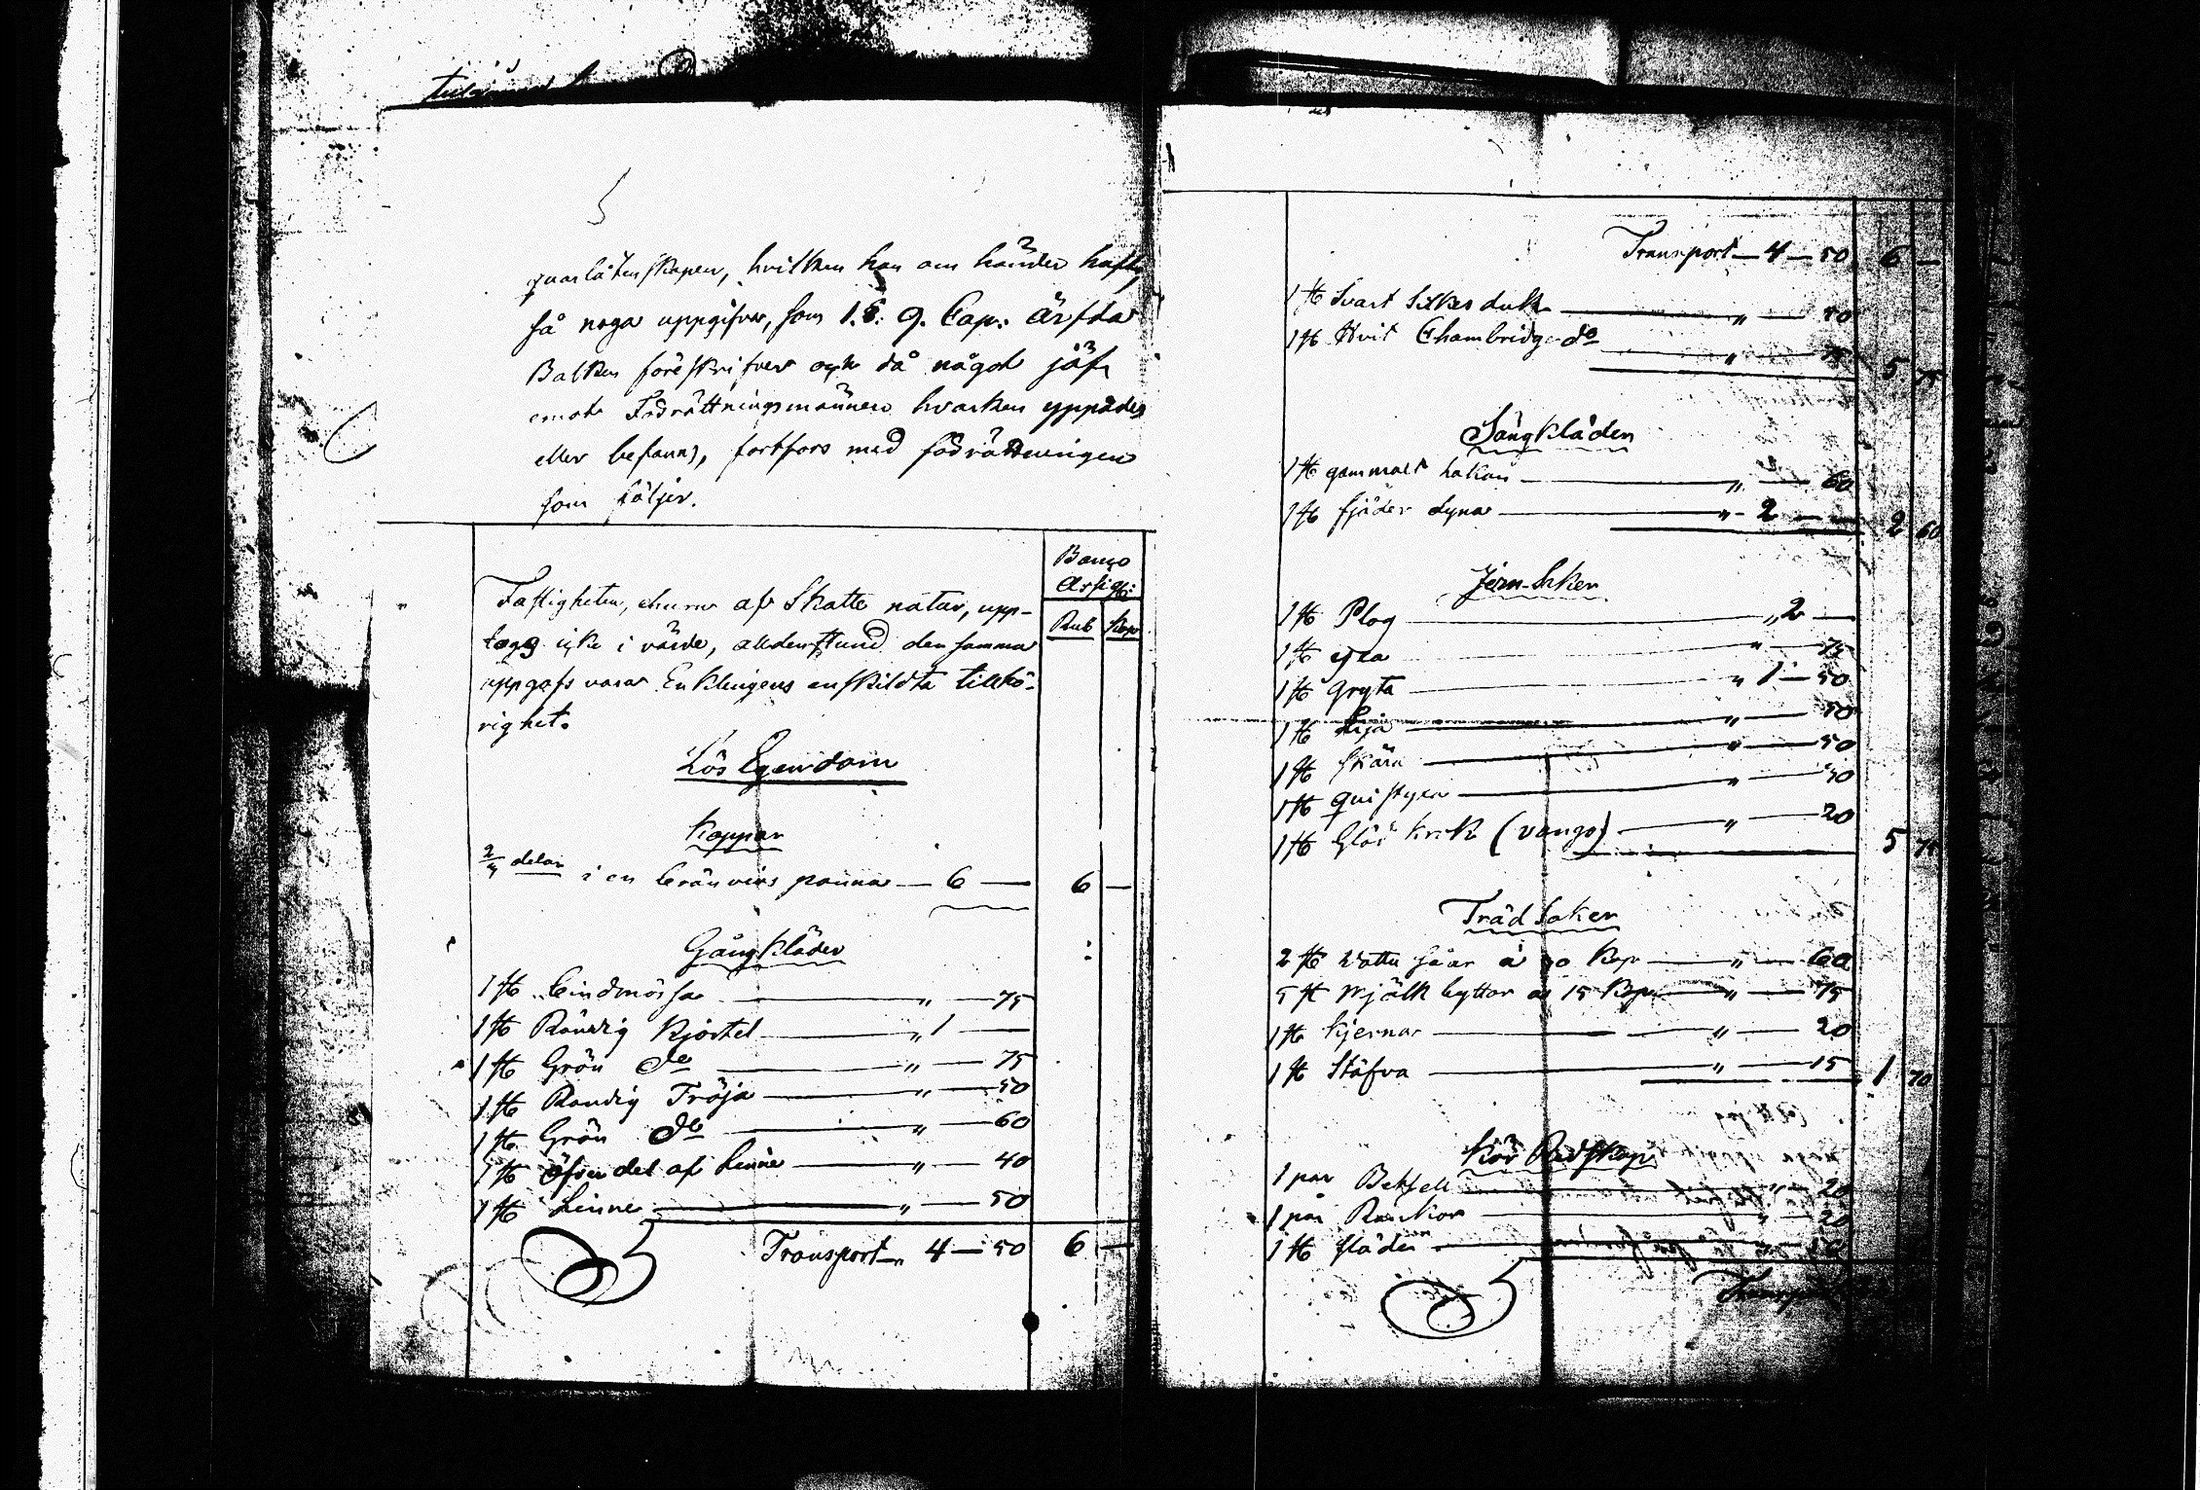 quarlåtenskapen, hvilken han om händer haft,
så noga uppgifver, som 1.§. 9. Cap: Ärfda
Balken föreskrifver och då något jäf
emot Förrättningsmännen hvarken yppades
eller befanns, fortfors med förrättningen
som följer.
Banco
Assig:
Rub Kop
Fastigheten, ehuru af Skatte natur, upp-
togs icke i värde, alldenstund den samma
uppgafs vara Enklingens enskildta tillhö-
righet.
Lös Egendom
Koppar
delar i en bränvins panna — 6 — 6 —
Gångkläder
1 st. bindmössa — „ — 75
1 st. Randig Kjortel — „ 1 —
1 st. Grön do — „ — 75
1 st. Randig Tröja — „ — 50
1 st. Grön do — „ — 60
1 st. öfver del af Linne — „ — 40
1 st. Linne — „ — 50
Transport — 4 — 50 6 —
Transport — 4 — 50 6 —
1 st. Svart Silkes duk — „ — 50
1 st. Hvit Chambridge do — „ — 75 5 75
Sängkläder
1 st. gammalt lakan — „ — 60
1 st. fjäder dyna — „ — 2 — 2 60
Jern Saker
1 st. Plog — „ 2 —
1 st. yxa — „ — 75
1 st. Gryta — „ 1 — 50
1 st. Lija — „ — 50
1 st. Skära — „ — 50
1 st. quistyxa — „ —
1 st. krok (vango) — „ — 20 5 75
Träd Saker
2 st. Vattu såar à 30 Kop — „ — 60
5 st. Mjölk byttor à 15 Kop — „ — 75
1 st. Kjerna — „ — 20
1 st. Stäfva — „ — 15 1 70
Kör Redskap
1 par Betsell — „ — 20
1 par Rankor — „ — 20
1 st. Släde —
Transport